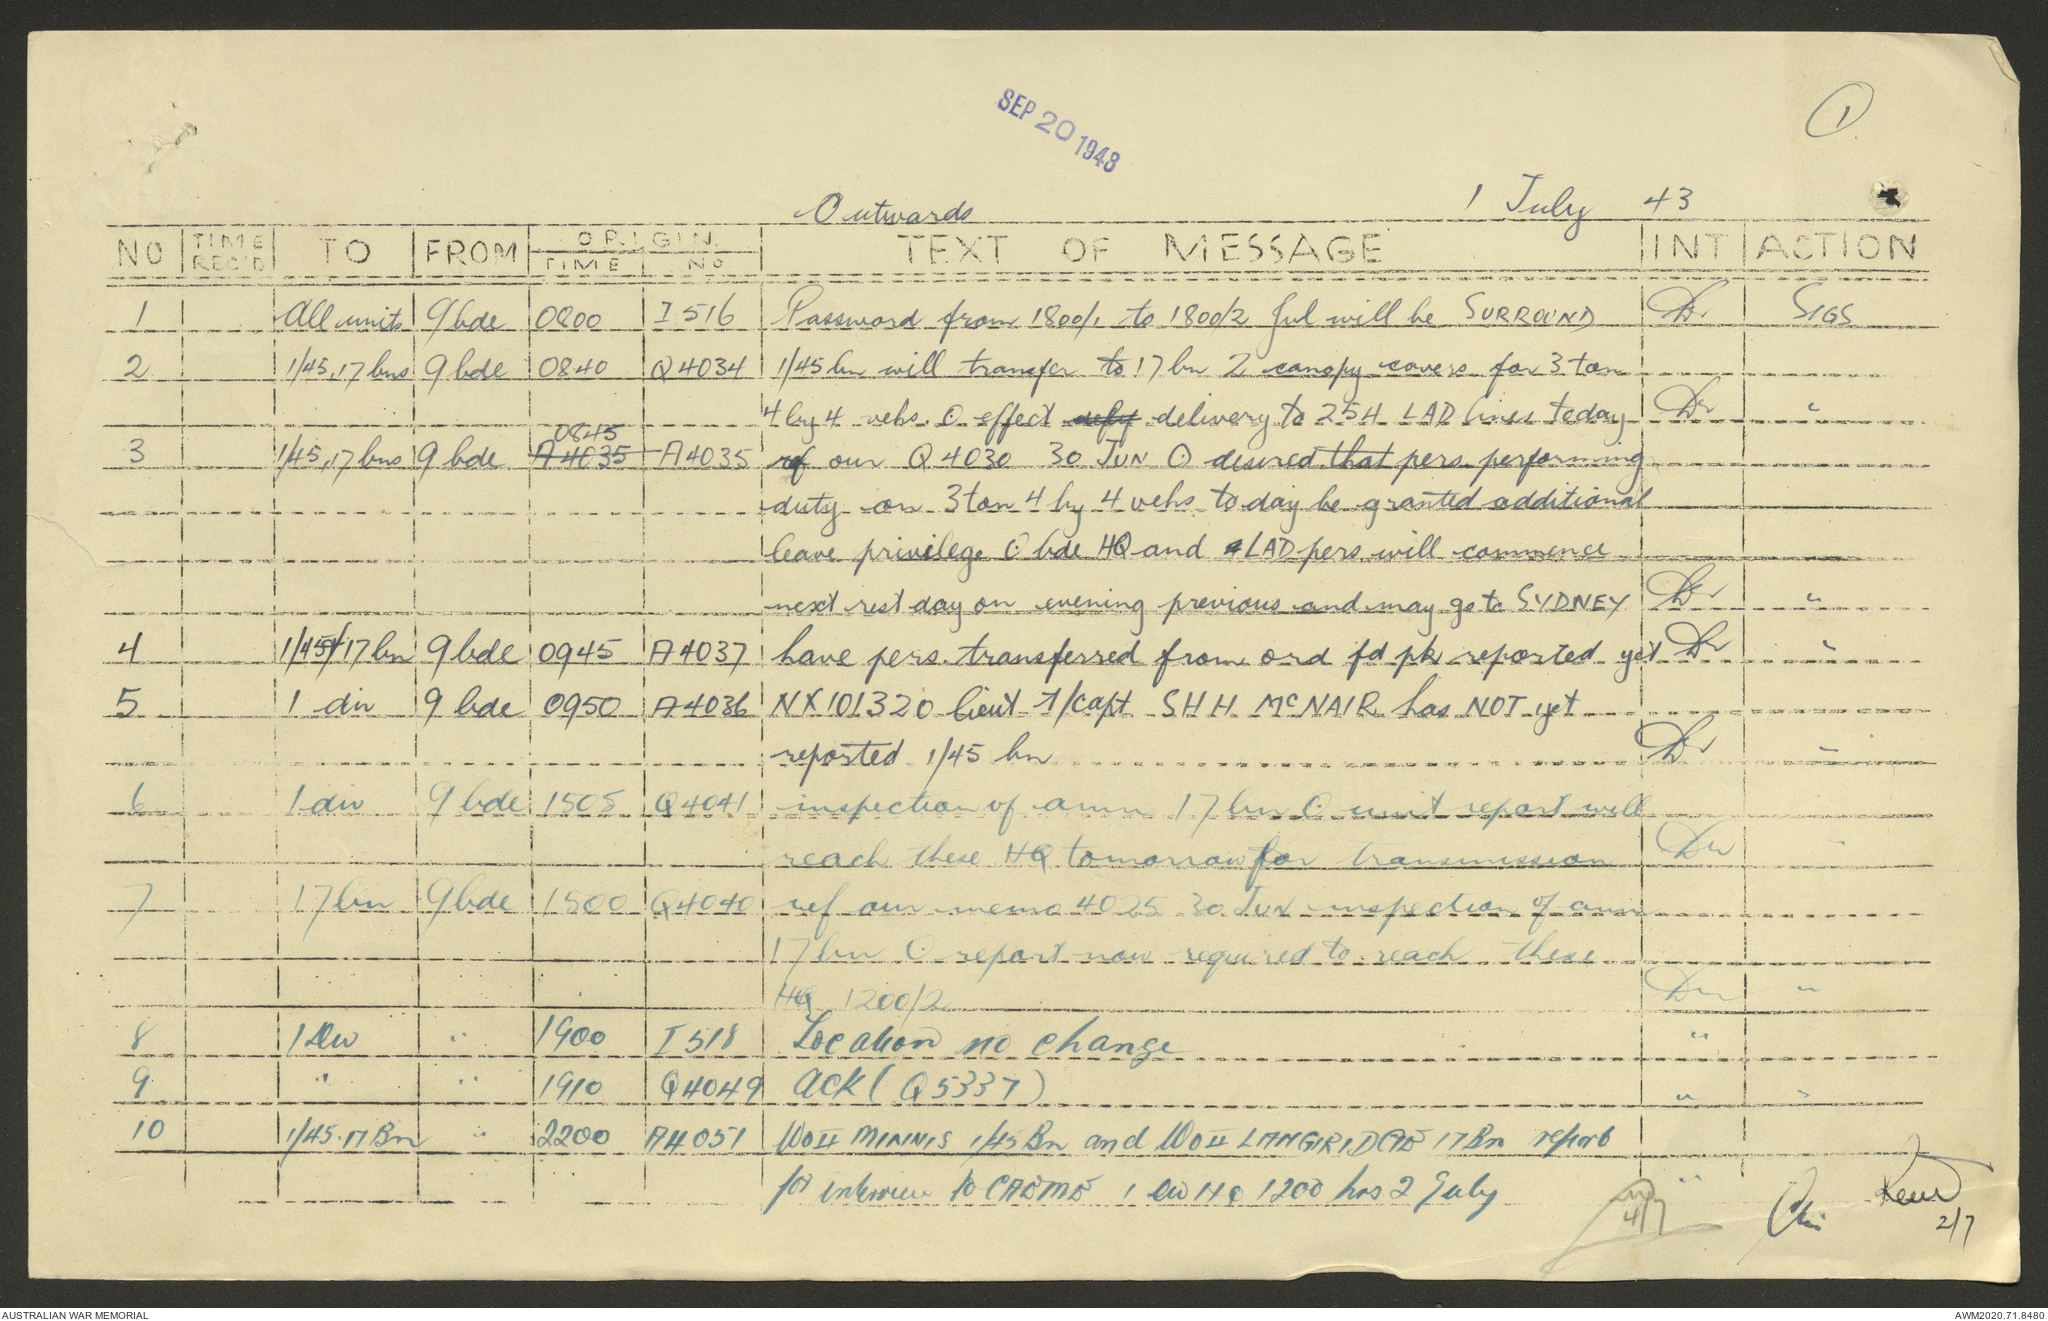 SEP 20 1943
1
Outwards 1 July 43
NO TIME REC'D TO FROM ORIGIN TIME NO TEXT OF MESSAGE INT ACTION
1 All units 9 bde 0800 I 516 Password from 1800/1 to 1800/2 Jul will be SURROUND Dr SIGS
2 1/45, 17 bns 9 bde 0840 Q 4034 1/45 bn will transfer to 17 bn 2 canopy covers for 3 ton
4 by 4 vehs. O effect delivery to 254 LAD lines today Dr "
3 1/45, 17 bns 9 bde 0845 A 4035 A 4035 ref our Q 4030 30 JUN O desired that pers performing
duty on 3 ton 4 by 4 vehs today be granted additional
leave privilege O bde HQ and LAD pers will commence
next rest day on evening previous and may go to SYDNEY Dr "
4 1/45/17 bn 9 bde 0945 A 4037 have pers. transferred from ord fd pk reported yet Dr "
5 1 div 9 bde 0950 A 4036 NX101320 lieut T/Capt SHH McNAIR has NOT yet
reported 1/45 bn Dr "
6 1 div 9 bde 1505 Q 4041 inspection of amn 17 bn O unit report will
reach these HQ tomorrow for transmission "
7 17 bn 9 bde 1500 Q 4040 ref our memo 4025 30 JUN inspection of amn
17 bn O report now required to reach these
HQ 1200/2 "
8 1 Div " 1900 I 518 Location no change "
9 " " 1910 Q 4049 ACK (Q 5337) " "
10 1/45. 17 Bn " 2200 A 4051 WO II MINNIS 1/45 Bn and WO II 17 Bn report
for interview to 1 Div HQ 1200 hrs 2 July "
4/7
2/7
AUSTRALIAN WAR MEMORIAL AWM2020.71.8480